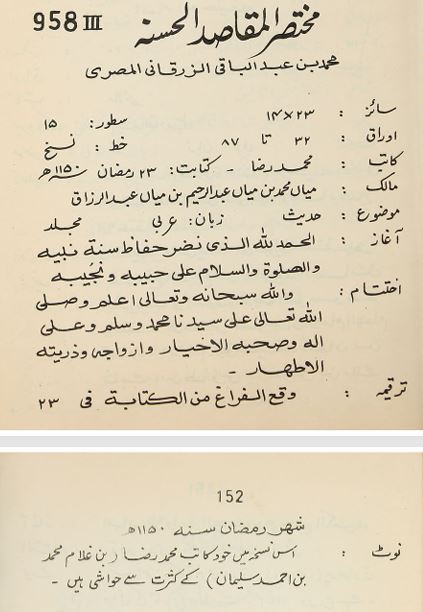 958 III
مختصر المقاصد الحسنہ
محمد بن عبد الباقی الزرقانی المصری
سائز : ۲۳×۱۴ سطور: ۱۵
اوراق : ۳۲ تا ۸۷ خط : نسخ
کاتب : محمد رضا - کتابت: ۲۳ رمضان سنہ ۱۱۵۰ھ
مالک : میاں محمد بن میاں عبدالرحیم بن میاں عبدالرزاق
موضوع : حدیث زبان: عربی مجلد
آغاز : الحمد للہ الذی نضر حفاظ سنة نبیہ
والصلوة والسلام علی حبیبہ ونجیبہ
اختتام : واللہ سبحانہ وتعالی اعلم وصلی
اللہ تعالی علی سیدنا محمد وسلم وعلی
الہ وصحبہ الاخیار وازواجہ وذریتہ
الاطہار -
ترقیمہ : وقع الفراغ من الکتابة فی ۲۳
152
شہر رمضان سنہ ۱۱۵۰ھ
نوٹ : اس نسخہ میں خود کاتب محمد رضا (بن غلام محمد
بن احمد سلیمان) کے کثرت سے حواشی ہیں -